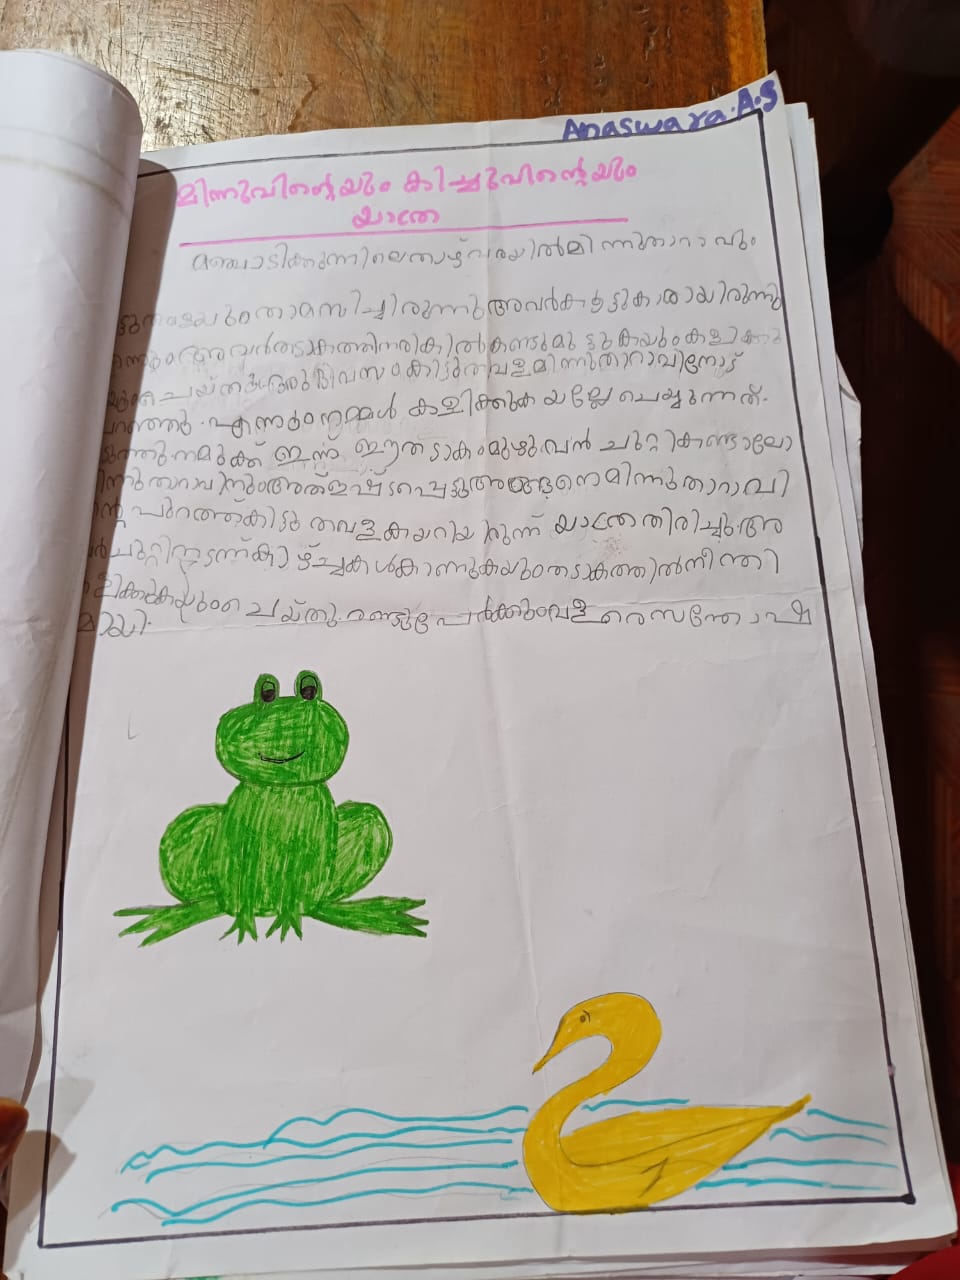 Anaswara.A.S
മിന്നുവിന്റെയും കിച്ചുവിന്റെയും
യാത്ര
മഞ്ചാടിക്കുന്നിലെതാഴ്‌വരയിൽമിന്നുതാറാവും
താമസിച്ചിരുന്നുഅവർകൂട്ടുകാരായിരുന്നു
അവർതടാകത്തിനരികിൽകണ്ടുമുട്ടുകയുംകളിക്കു
ചെയ്തുഒരുദിവസംകിട്ടുതവളമിന്നുതാറാവിനോട്
പറഞ്ഞു.എന്നുംനമ്മൾ കളിക്കുകയല്ലേചെയ്യുന്നത്.
നമുക്ക് ഇന്ന് ഈതടാകംമുഴുവൻ ചുറ്റികണ്ടാലോ
താറാവിനുംഅത്ഇഷ്ടപ്പെട്ടുഅങ്ങനെമിന്നുതാറാവി
ന്റെ പുറത്ത്കിട്ടുതവളകയറിയിരുന്ന് യാത്രതിരിച്ചുഅ
ർചുറ്റിനടന്ന്കാഴ്ച്ചകൾകാണുകയുംതടാകത്തിൽനീന്തി
ളിക്കുകയുംചെയ്തു.രണ്ടുപേർക്കുംവളരെസന്തോഷ
മായി.